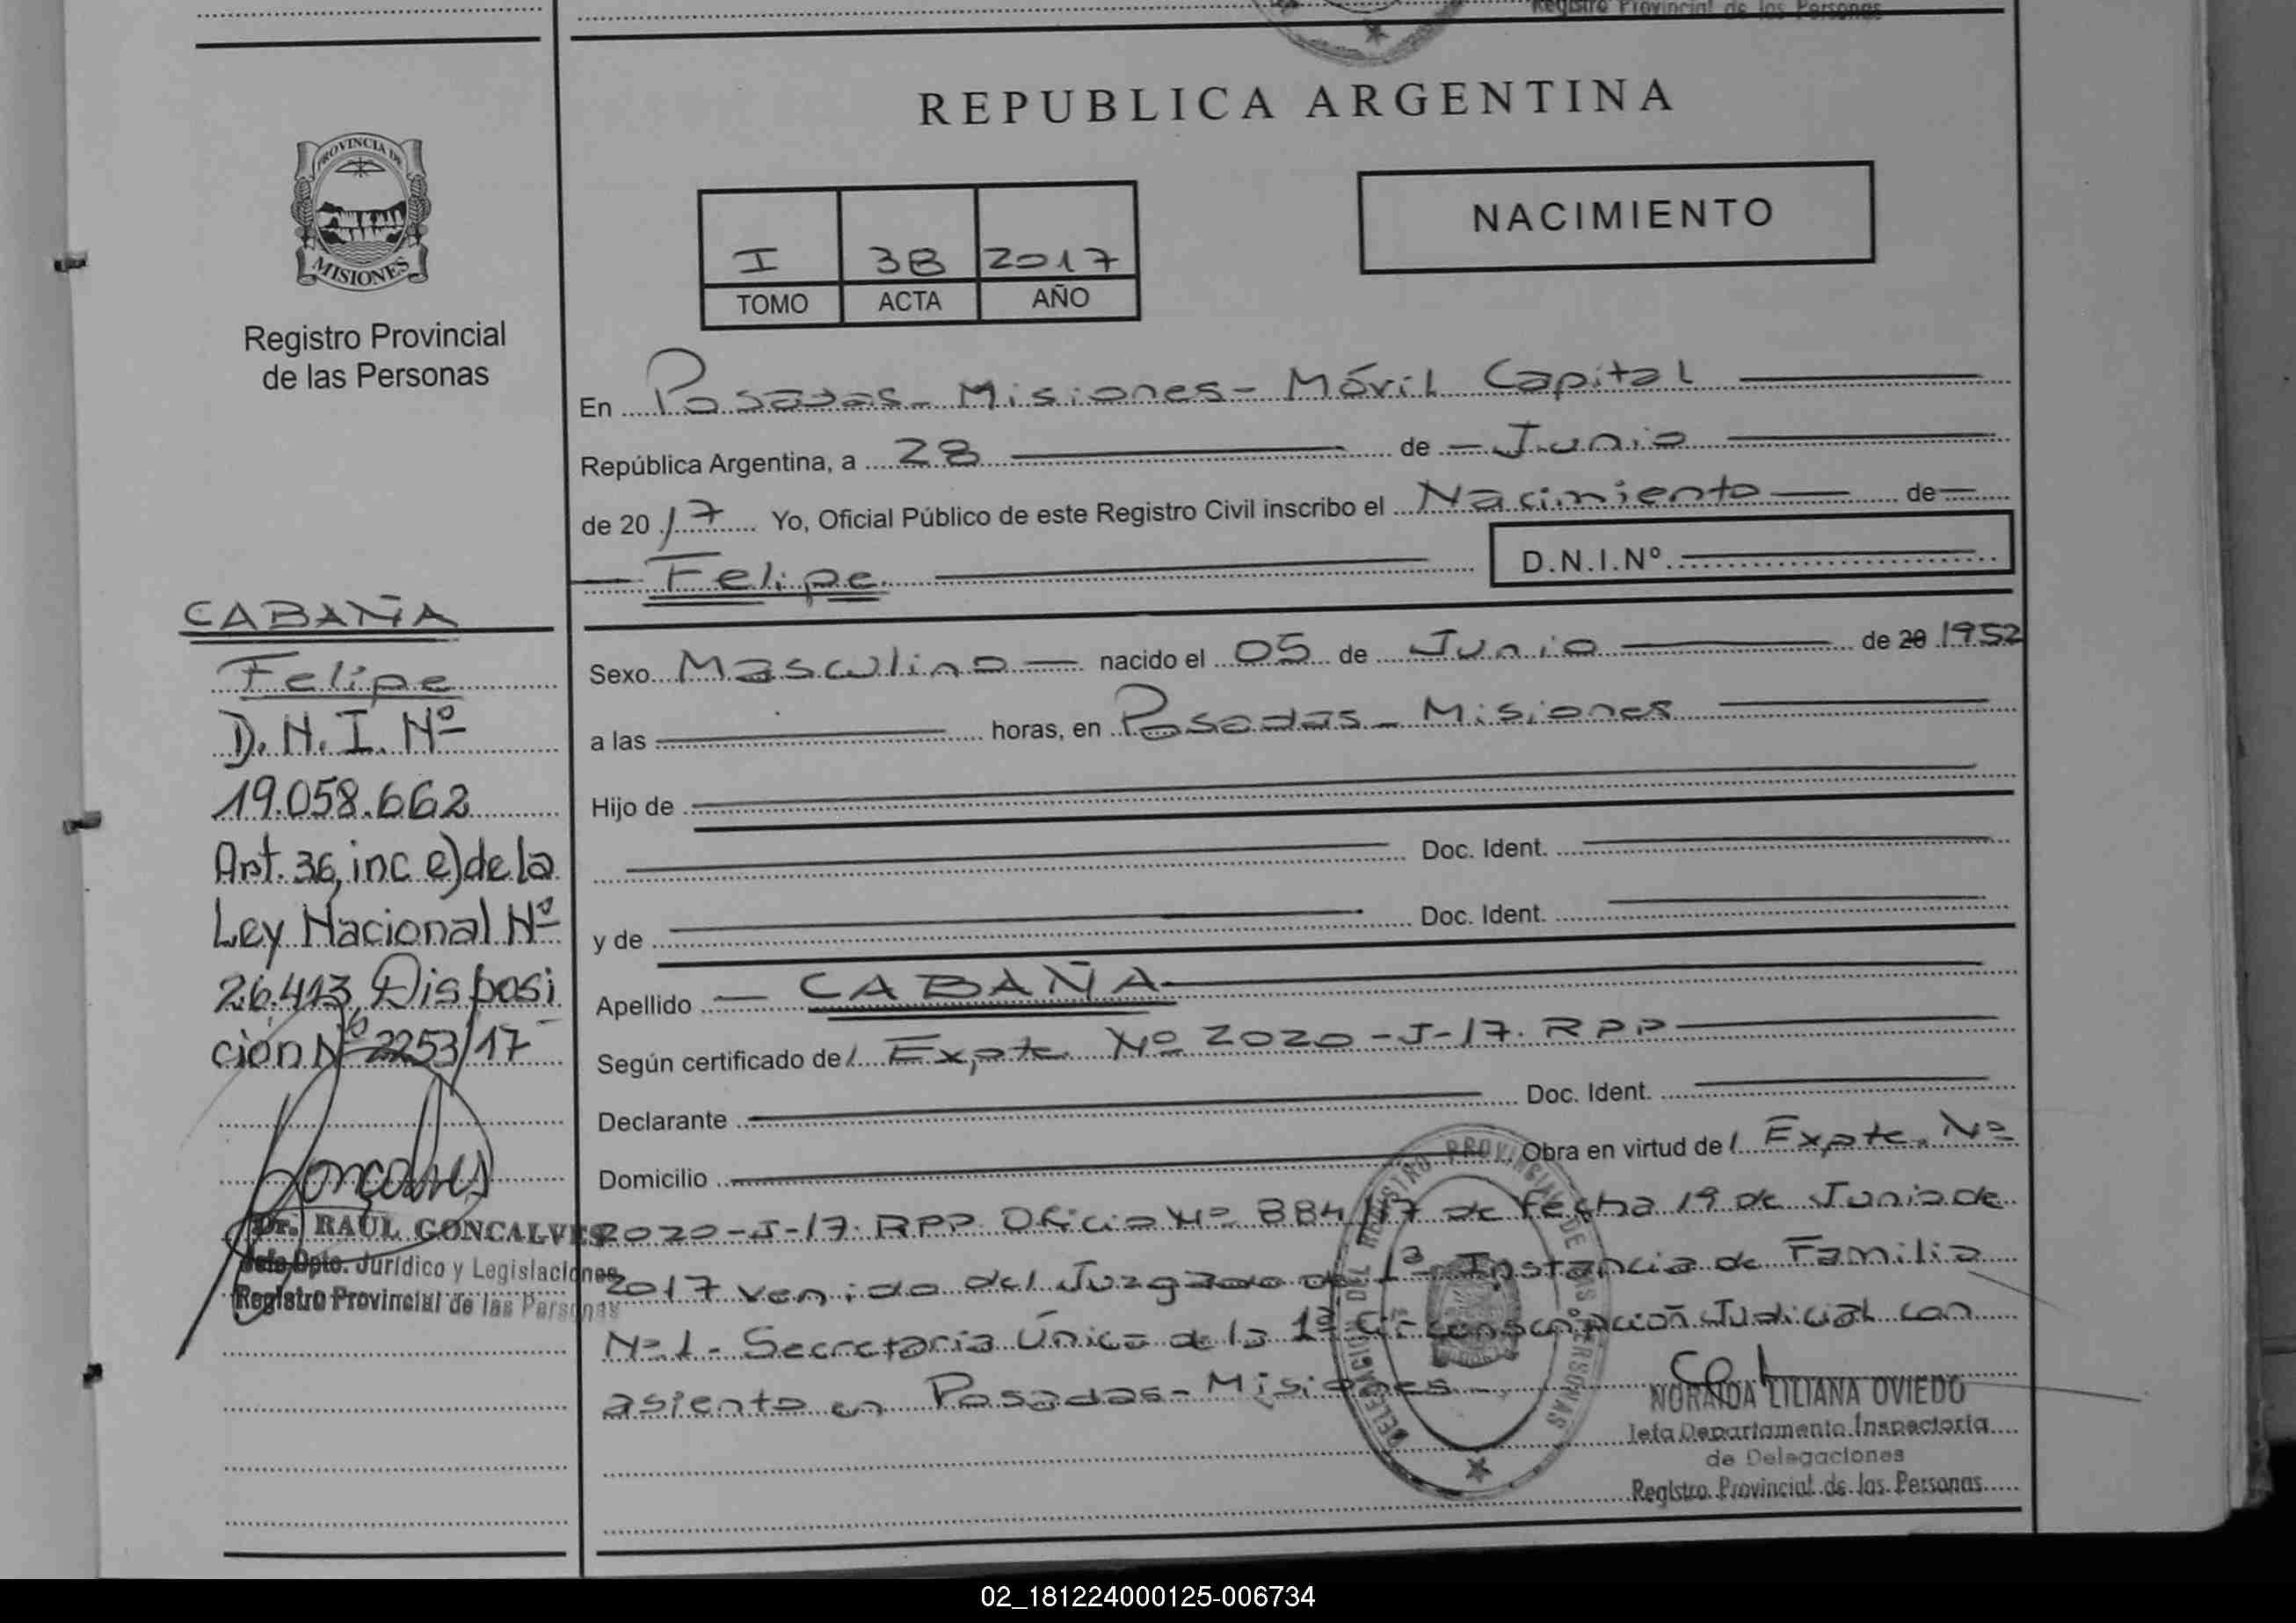 Registro Provincial de las Personas
REPUBLICA ARGENTINA
PROVINCIA DE
MISIONES
Registro Provincial
de las Personas
I 38 2017
TOMO ACTA AÑO
NACIMIENTO
En Posadas - Misiones - Móvil Capital
República Argentina, a 28 de Junio
de 2017 Yo, Oficial Público de este Registro Civil inscribo el Nacimiento de
Felipe D.N.I.Nº
Sexo Masculino nacido el 05 de Junio de 20 1952
a las horas, en Posadas - Misiones
Hijo de
Doc. Ident.
y de Doc. Ident.
Apellido CABAÑA
Según certificado de/ Expte Nº 2020-J-17. RPP
Declarante Doc. Ident.
Domicilio Obra en virtud de/ Expte. Nº
2020-J-17. RPP. Oficio Nº 884/17 de fecha 19 de Junio de
2017 venido del Juzgado de 1ª Instancia de Familia
Nº 1 - Secretaría Única de la 1ª Circunscripción Judicial con
asiento en Posadas - Misiones
CABAÑA
Felipe
D.N.I. Nº
19.058.662
Art. 36, inc e) de la
Ley Nacional Nº
26.413 Disposi
ción Nº 2253/17
Goncalves
Dr. RAUL GONCALVES
Jefe Dpto. Jurídico y Legislaciones
Registro Provincial de las Personas
DELEGACION DEL REGISTRO PROVINCIAL DE LAS PERSONAS
NORAIDA LILIANA OVIEDO
Jefa Departamento Inspectoría
de Delegaciones
Registro Provincial de las Personas
02_181224000125-006734